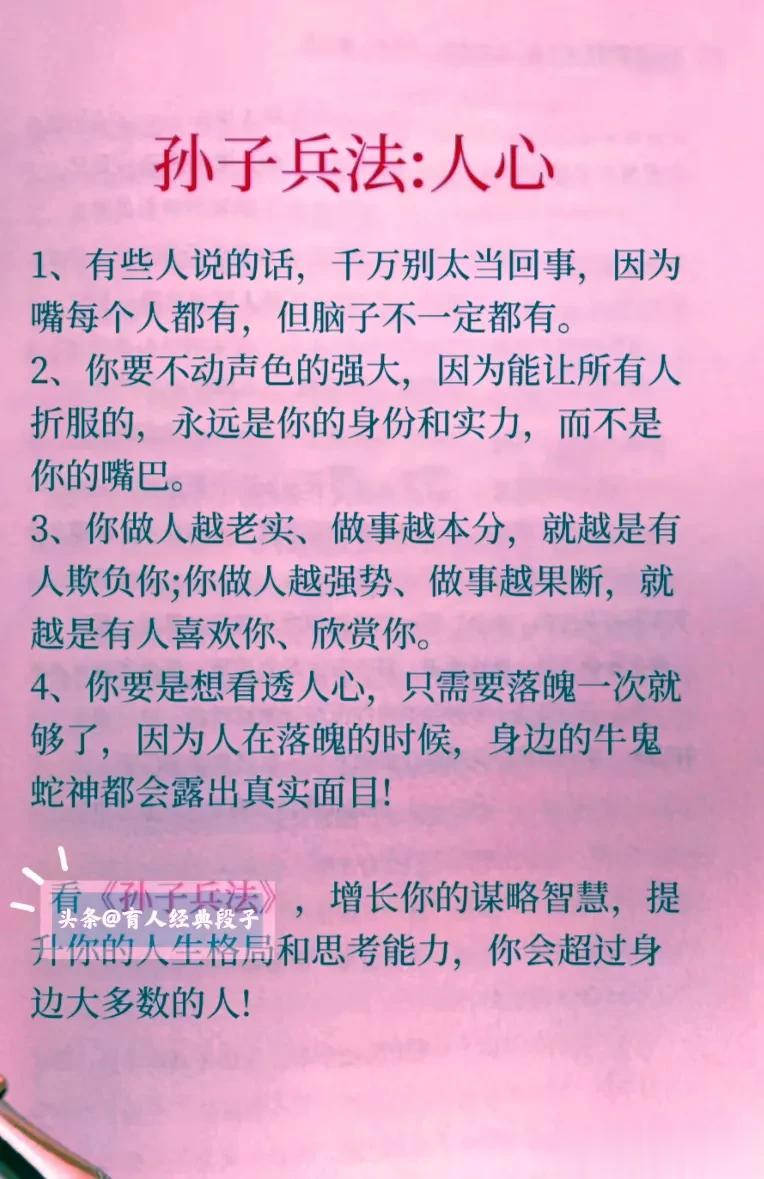 孙子兵法:人心
1、有些人说的话，千万别太当回事，因为
嘴每个人都有，但脑子不一定都有。
2、你要不动声色的强大，因为能让所有人
折服的，永远是你的身份和实力，而不是
你的嘴巴。
3、你做人越老实、做事越本分，就越是有
人欺负你;你做人越强势、做事越果断，就
越是有人喜欢你、欣赏你。
4、你要是想看透人心，只需要落魄一次就
够了，因为人在落魄的时候，身边的牛鬼
蛇神都会露出真实面目!
看《孙子兵法》，增长你的谋略智慧，提
头条@育人经典段子
升你的人生格局和思考能力，你会超过身
边大多数的人!